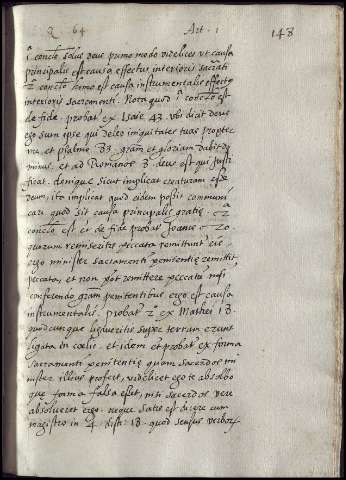 Q 64 Art. 1 148
1 conclo. solus deus primo modo videlicet ut causa
principalis est causa effectus interioris sacrati
2 conclo. homo est causa instrumentalis effectus
interioris sacramenti. Nota quod 1 conclo est
de fide. probat ex Isaie 43. ubi dicit deus
ego sum ipse qui deleo iniquitates tuas propter
me, et psalmo 83. gram et gloriam dabit do
minus. et ad Romanos 8 deus est qui justi
ficat. denique sicut implicat creaturam esse
deum, ita implicat quod eidem possit communi
cari quod sit causa principalis gratie. 2
conclo est et de fide probat Joanis 20
quorum remiseritis peccata remittunt eis,
ergo minister sacramenti penitentie remittit
peccata, et non pot remittere peccata nisi
conferendo gram penitentibus ergo est causa
instrumentalis. probat 2 ex Mathei 18.
quodcunque ligaveritis super terram erunt
ligata in coelo. et idem et probat ex forma
sacramenti penitentie quam sacerdos mi
nister illius profert, videlicet ego te absolvo
que forma falsa esset, nisi sacerdos vere
absolveret ergo. neque satis est dicere cum
magistro in 4 dist. 18. quod sensus verborum